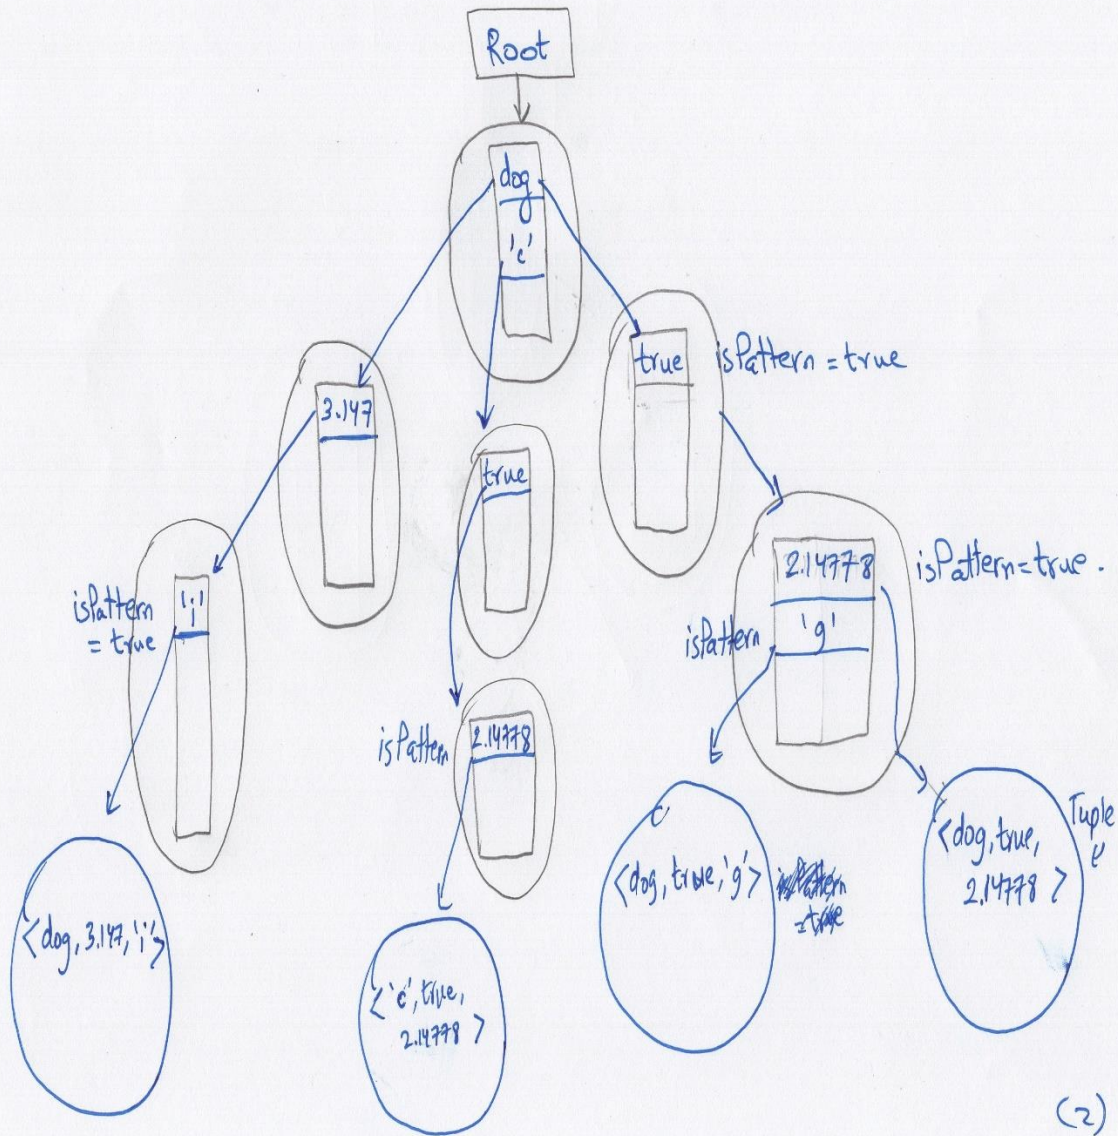 Root
dog
'c'
true isPattern = true
3.147
true
2.14778 isPattern=true.
isPattern 'g'
isPattern
= true
'i'
isPattern 2.14778
<dog, 3.147, 'i'>
<'c', true,
2.14778 >
<dog, true, 'g'>
isPattern
= true
<dog, true,
2.14778 >
Tuple
(2)